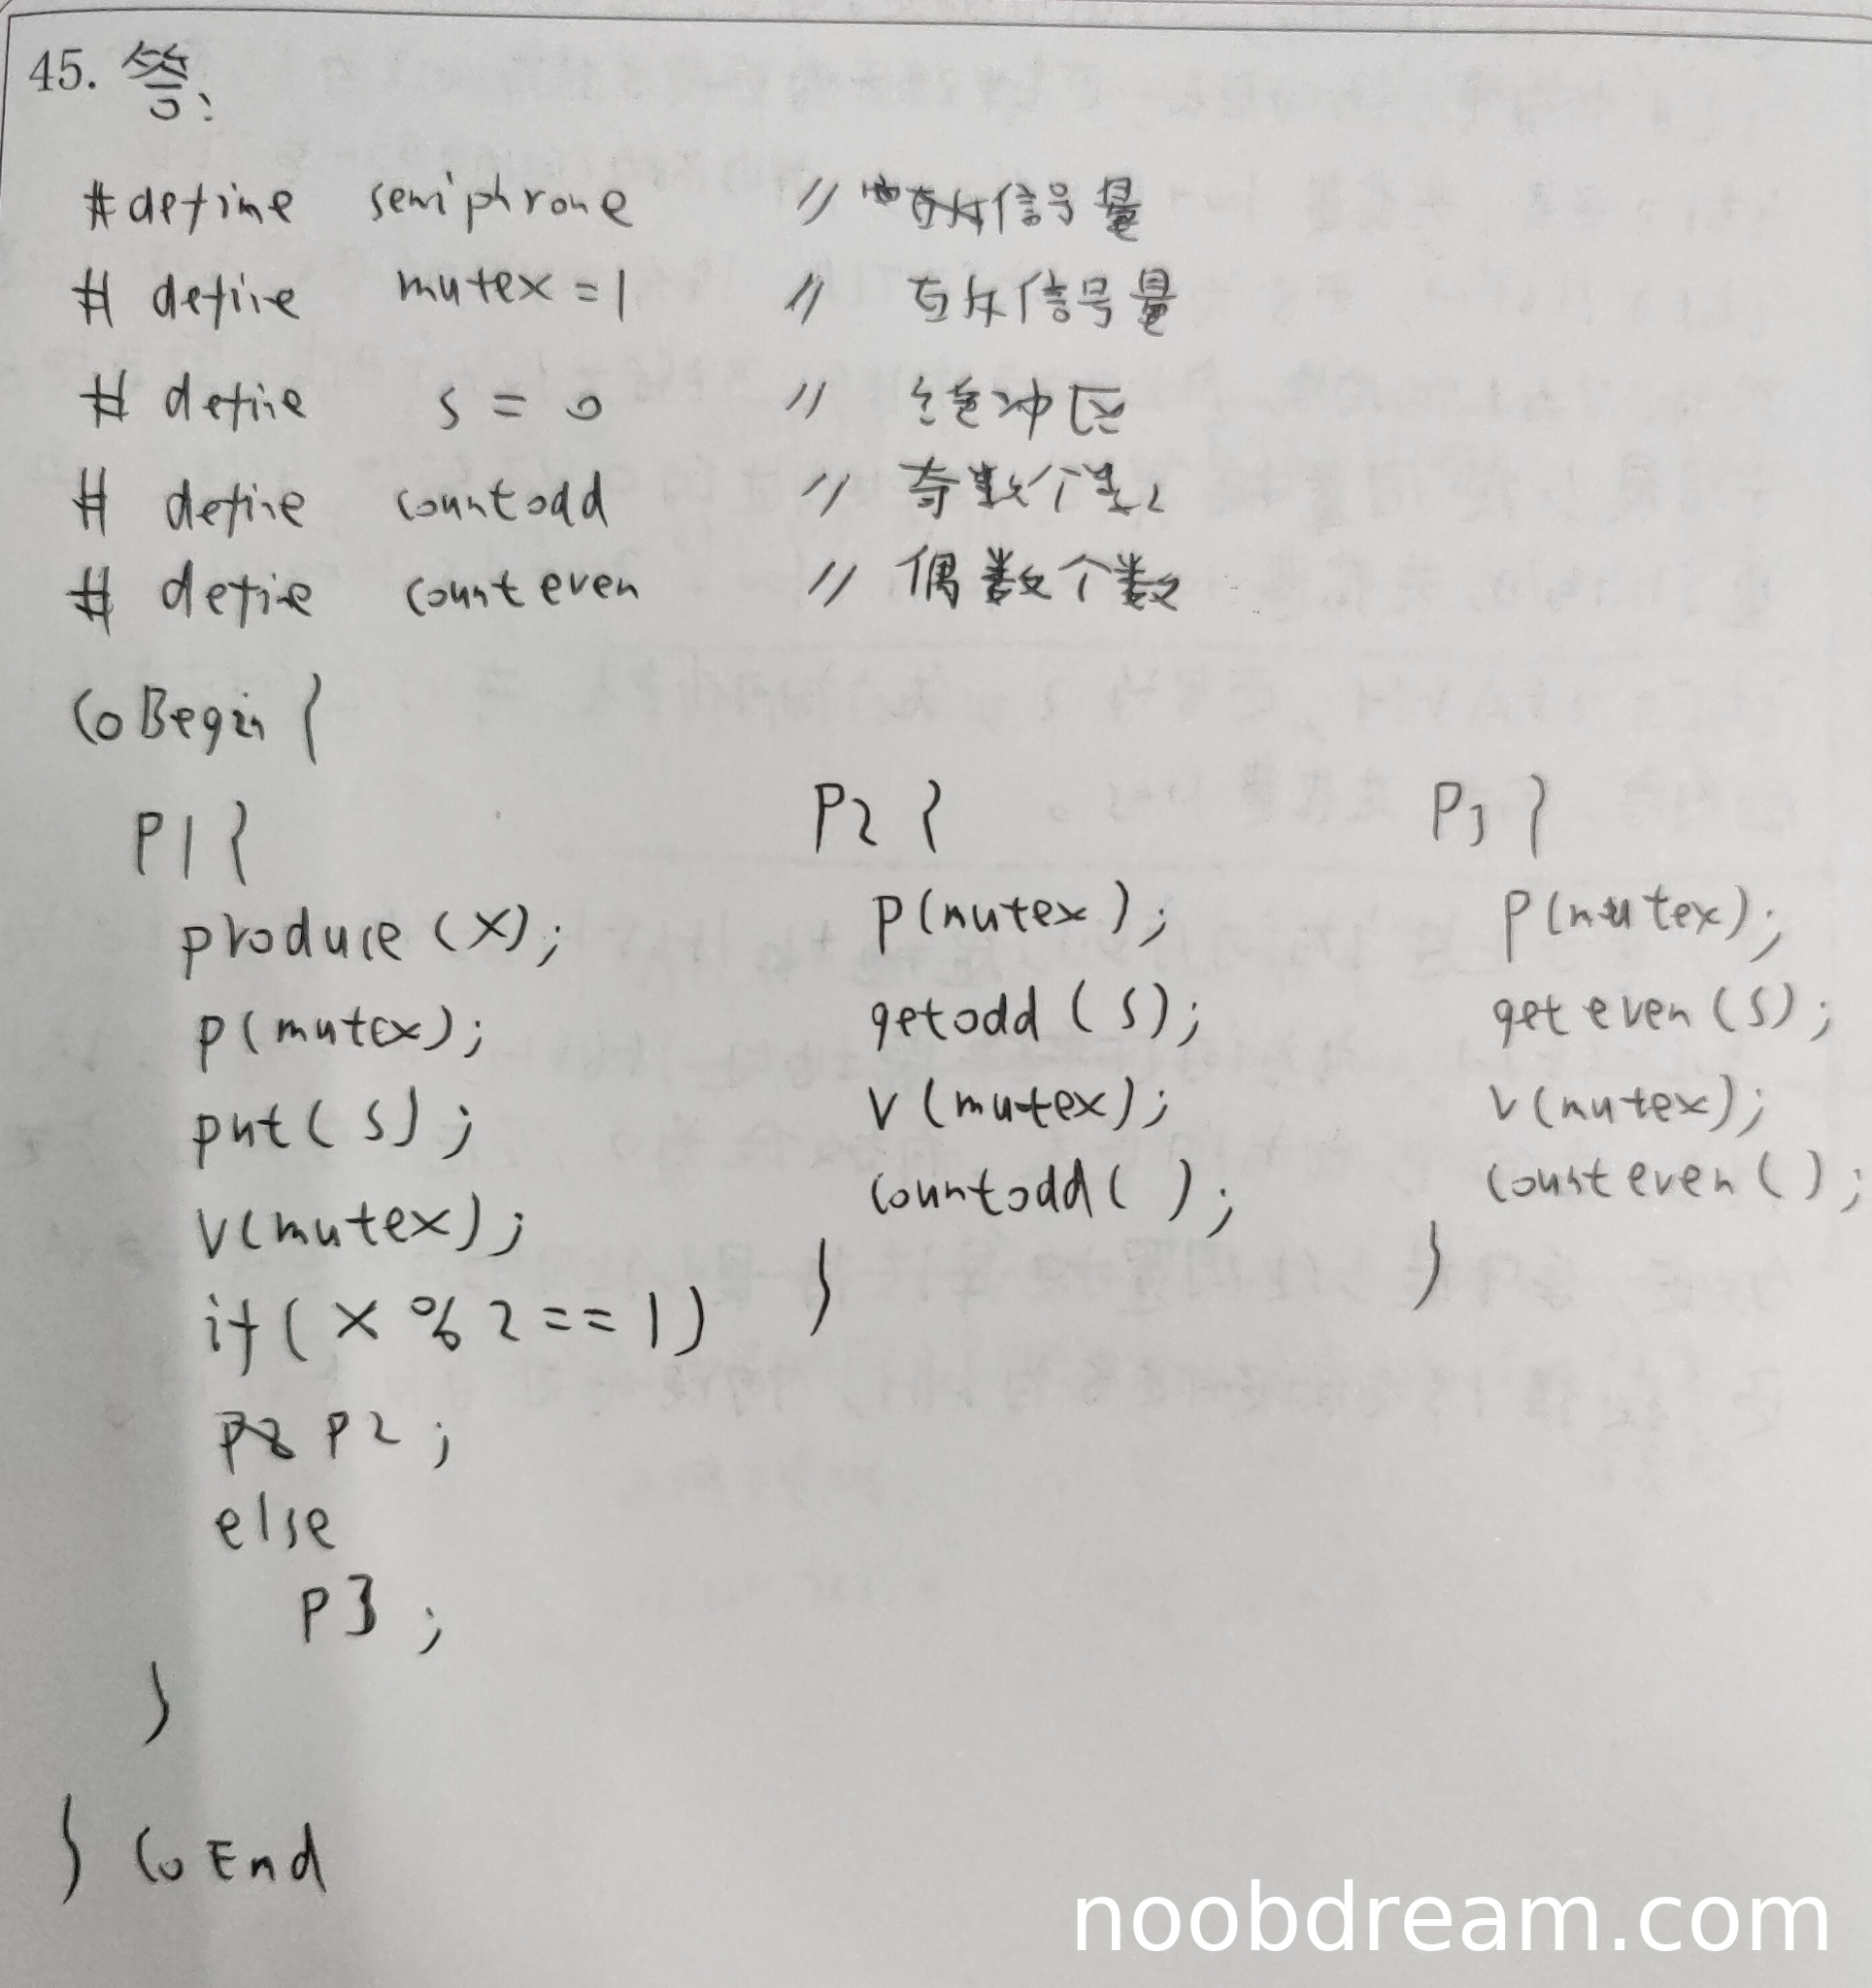 45. 答:
#define semiphrone // 互斥信号量
# define mutex = 1 // 互斥信号量
# define s = 0 // 缓冲区
# define countodd // 奇数个数
# define counteven // 偶数个数
CoBegin {
P1 {
produce (X);
p(mutex);
put( s) ;
v(mutex);
if( X % 2 == 1)
P2 ;
else
P3 ;
}
P2 {
p(mutex);
getodd ( s);
v (mutex);
countodd( );
}
P3 {
p(mutex);
geteven (s);
v(mutex);
counteven ( );
}
} CoEnd
noobdream.com